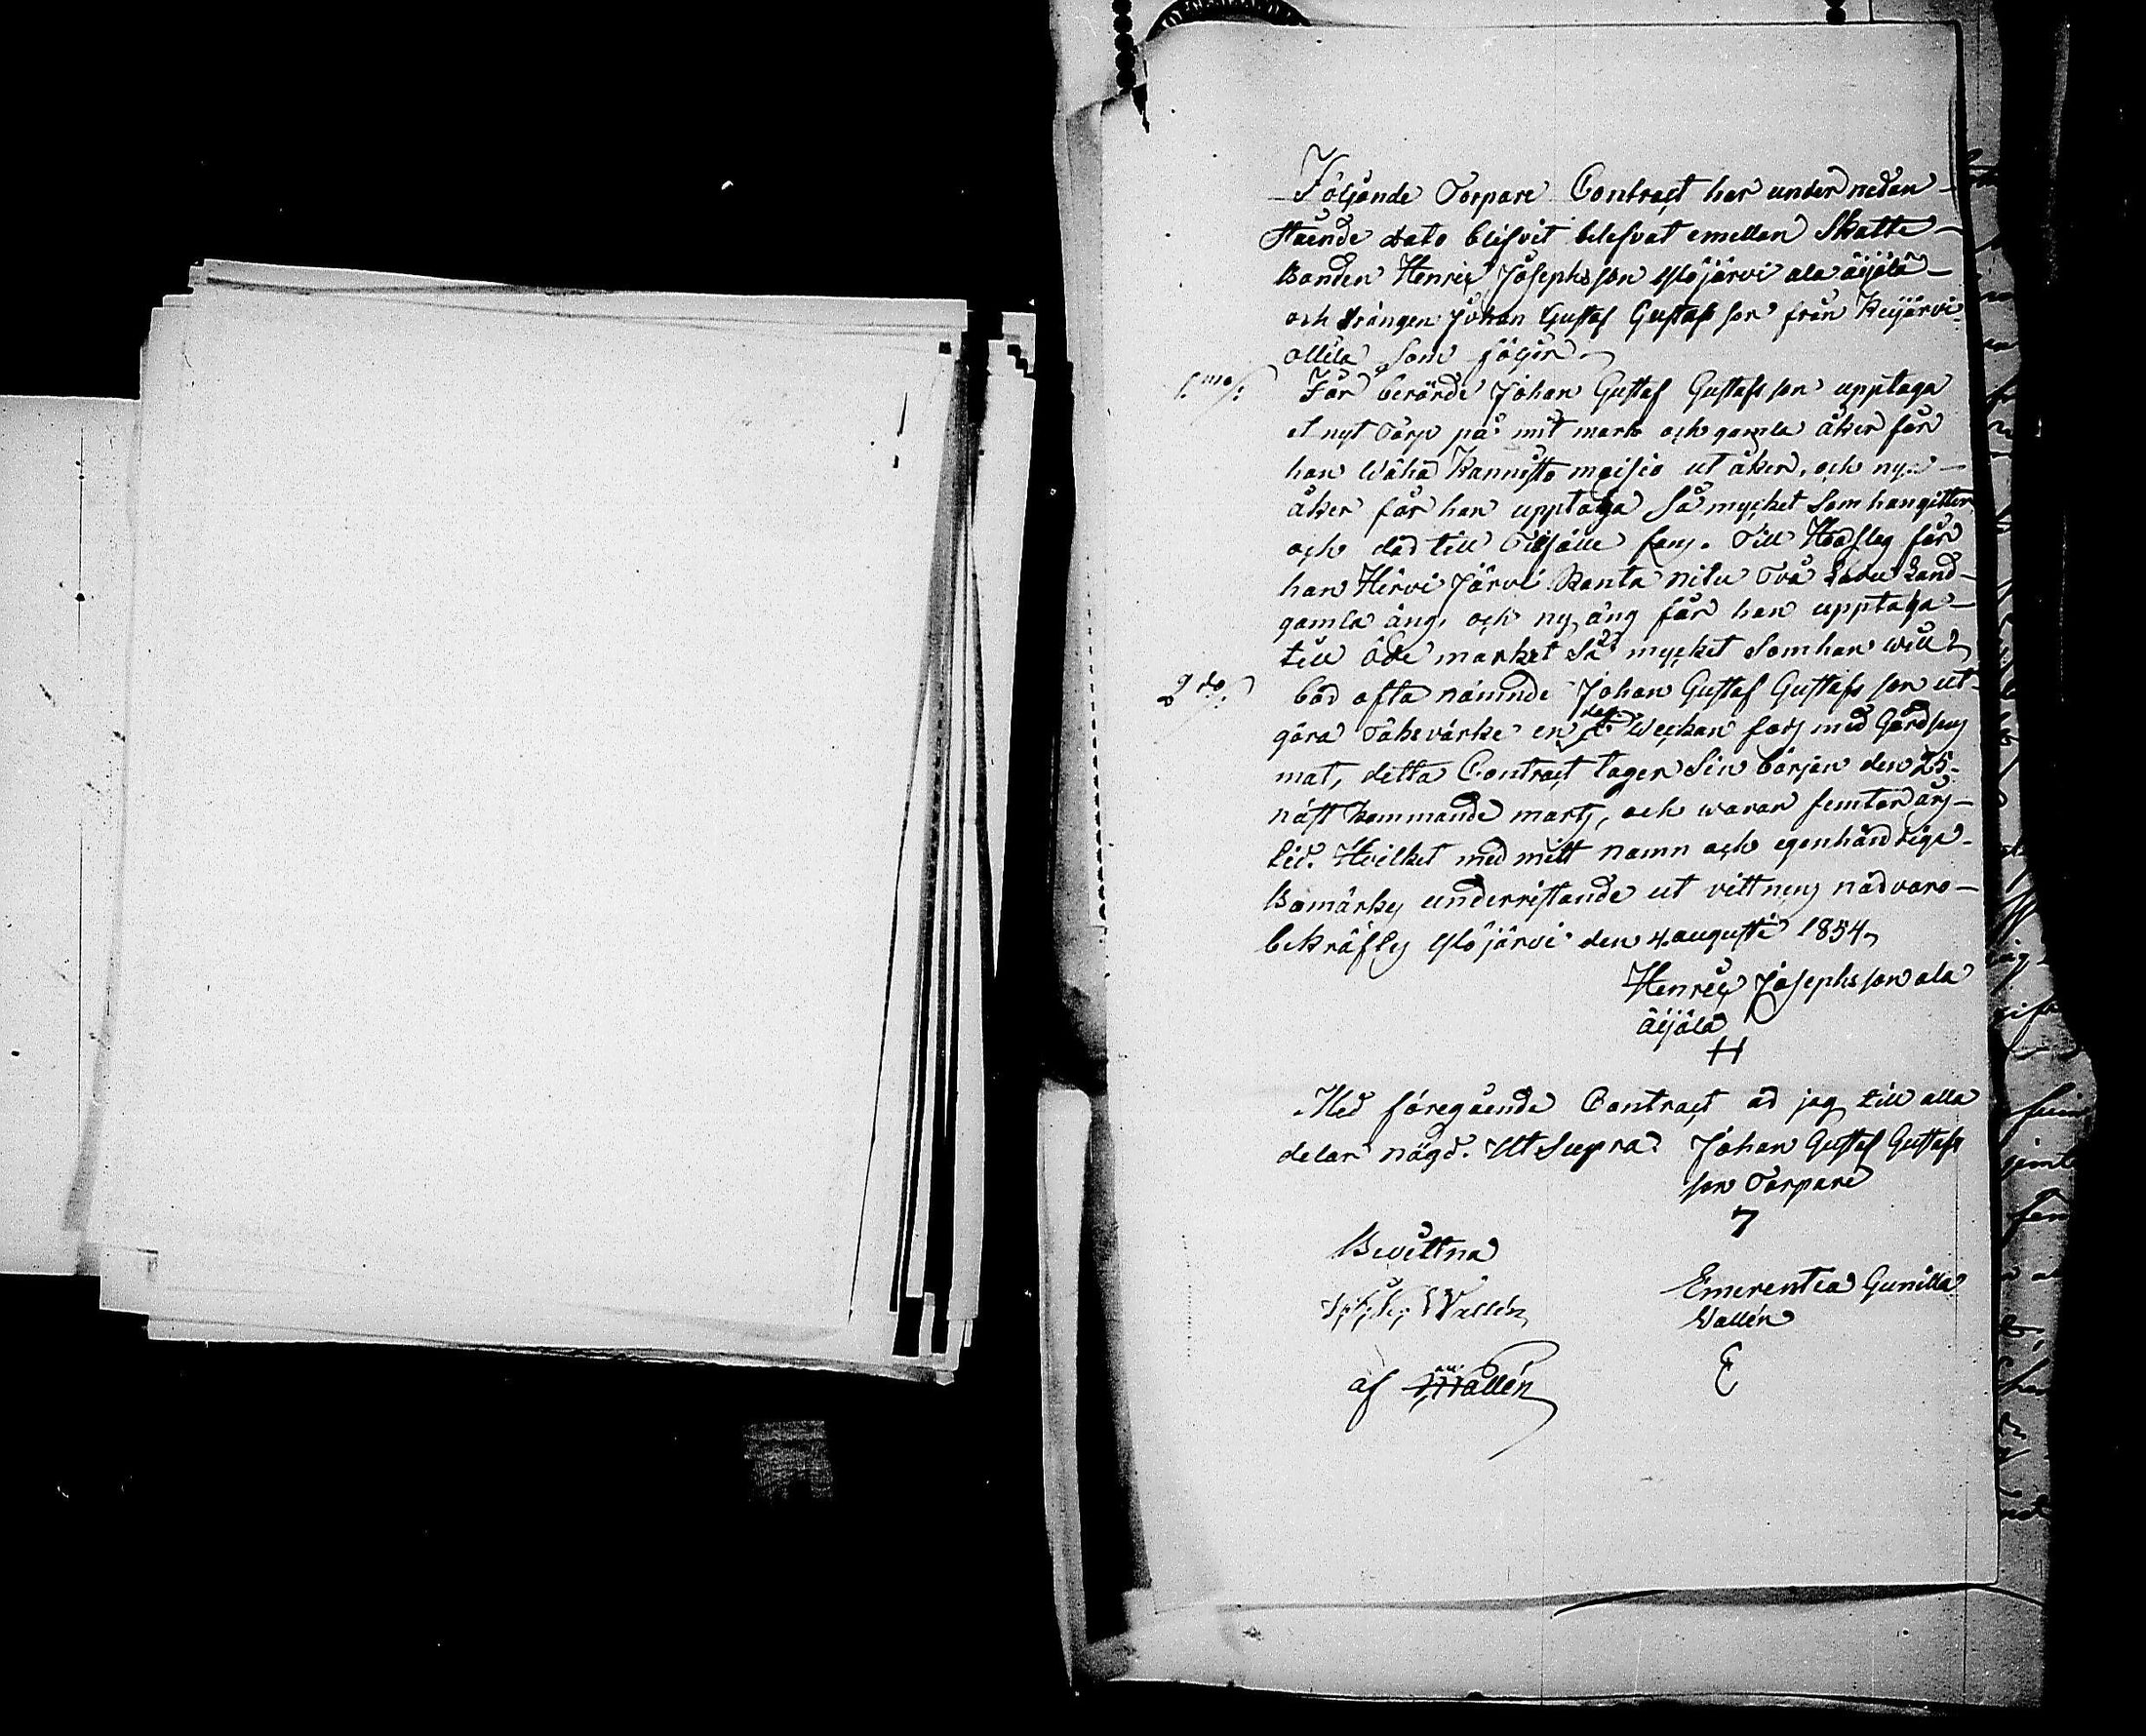 Följande Torpare Contract har under nedan-
stående dato blifvit belefvat emellan Skatte-
Bonden Henric Josephsson Ylöjärvi ala äijälä
och drängen Johan Gustaf Gustafsson från Keijärvi
ollila som följer
1:mo/: Får berörde Johan Gustaf Gustafsson upptaga
et nyt Torp på mit mark och gamla åker får
han Wähä Kannisto maisio ut åker, och ny
åker får han upptaga Så mycket Som han gitter
och
han Hirvi Järvi Ranta nitu Två Ladu Land
gamla äng, och ny äng får han upptaga
till Öde market Så mycket Som han will
2do/: bör ofta nämnde Johan Gustaf Gustafsson ut-
göra en dag Weckan
mat, detta Contract tager Sin början den 25
näst kommande marty, och warar femton års
tid. Hvilket med mitt namn och egenhändiga
Bomärke underristande ut vittnens nädvaro
bekräftes Ylöjärvi den 4 augusti 1854
Henric Josephsson ala
äijälä
H
Med föregående Contract är jag till alla
delar nögd. Ut Supra Johan Gustaf Gustafs
son Torpare
7
Bevittna
Wallén
Emerentia Gunilla
Wallén
af Wallén
E